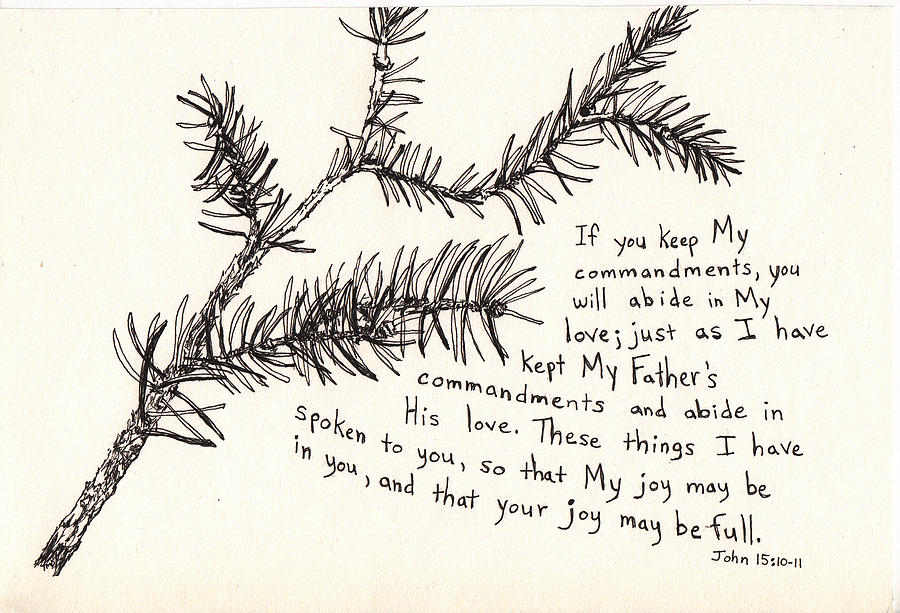 If you keep My
commandments, you
will abide in My
love; just as I have
kept My Father's
commandments and abide in
His love. These things I have
spoken to you, so that My joy may be
in you, and that your joy may be full.
John 15:10-11